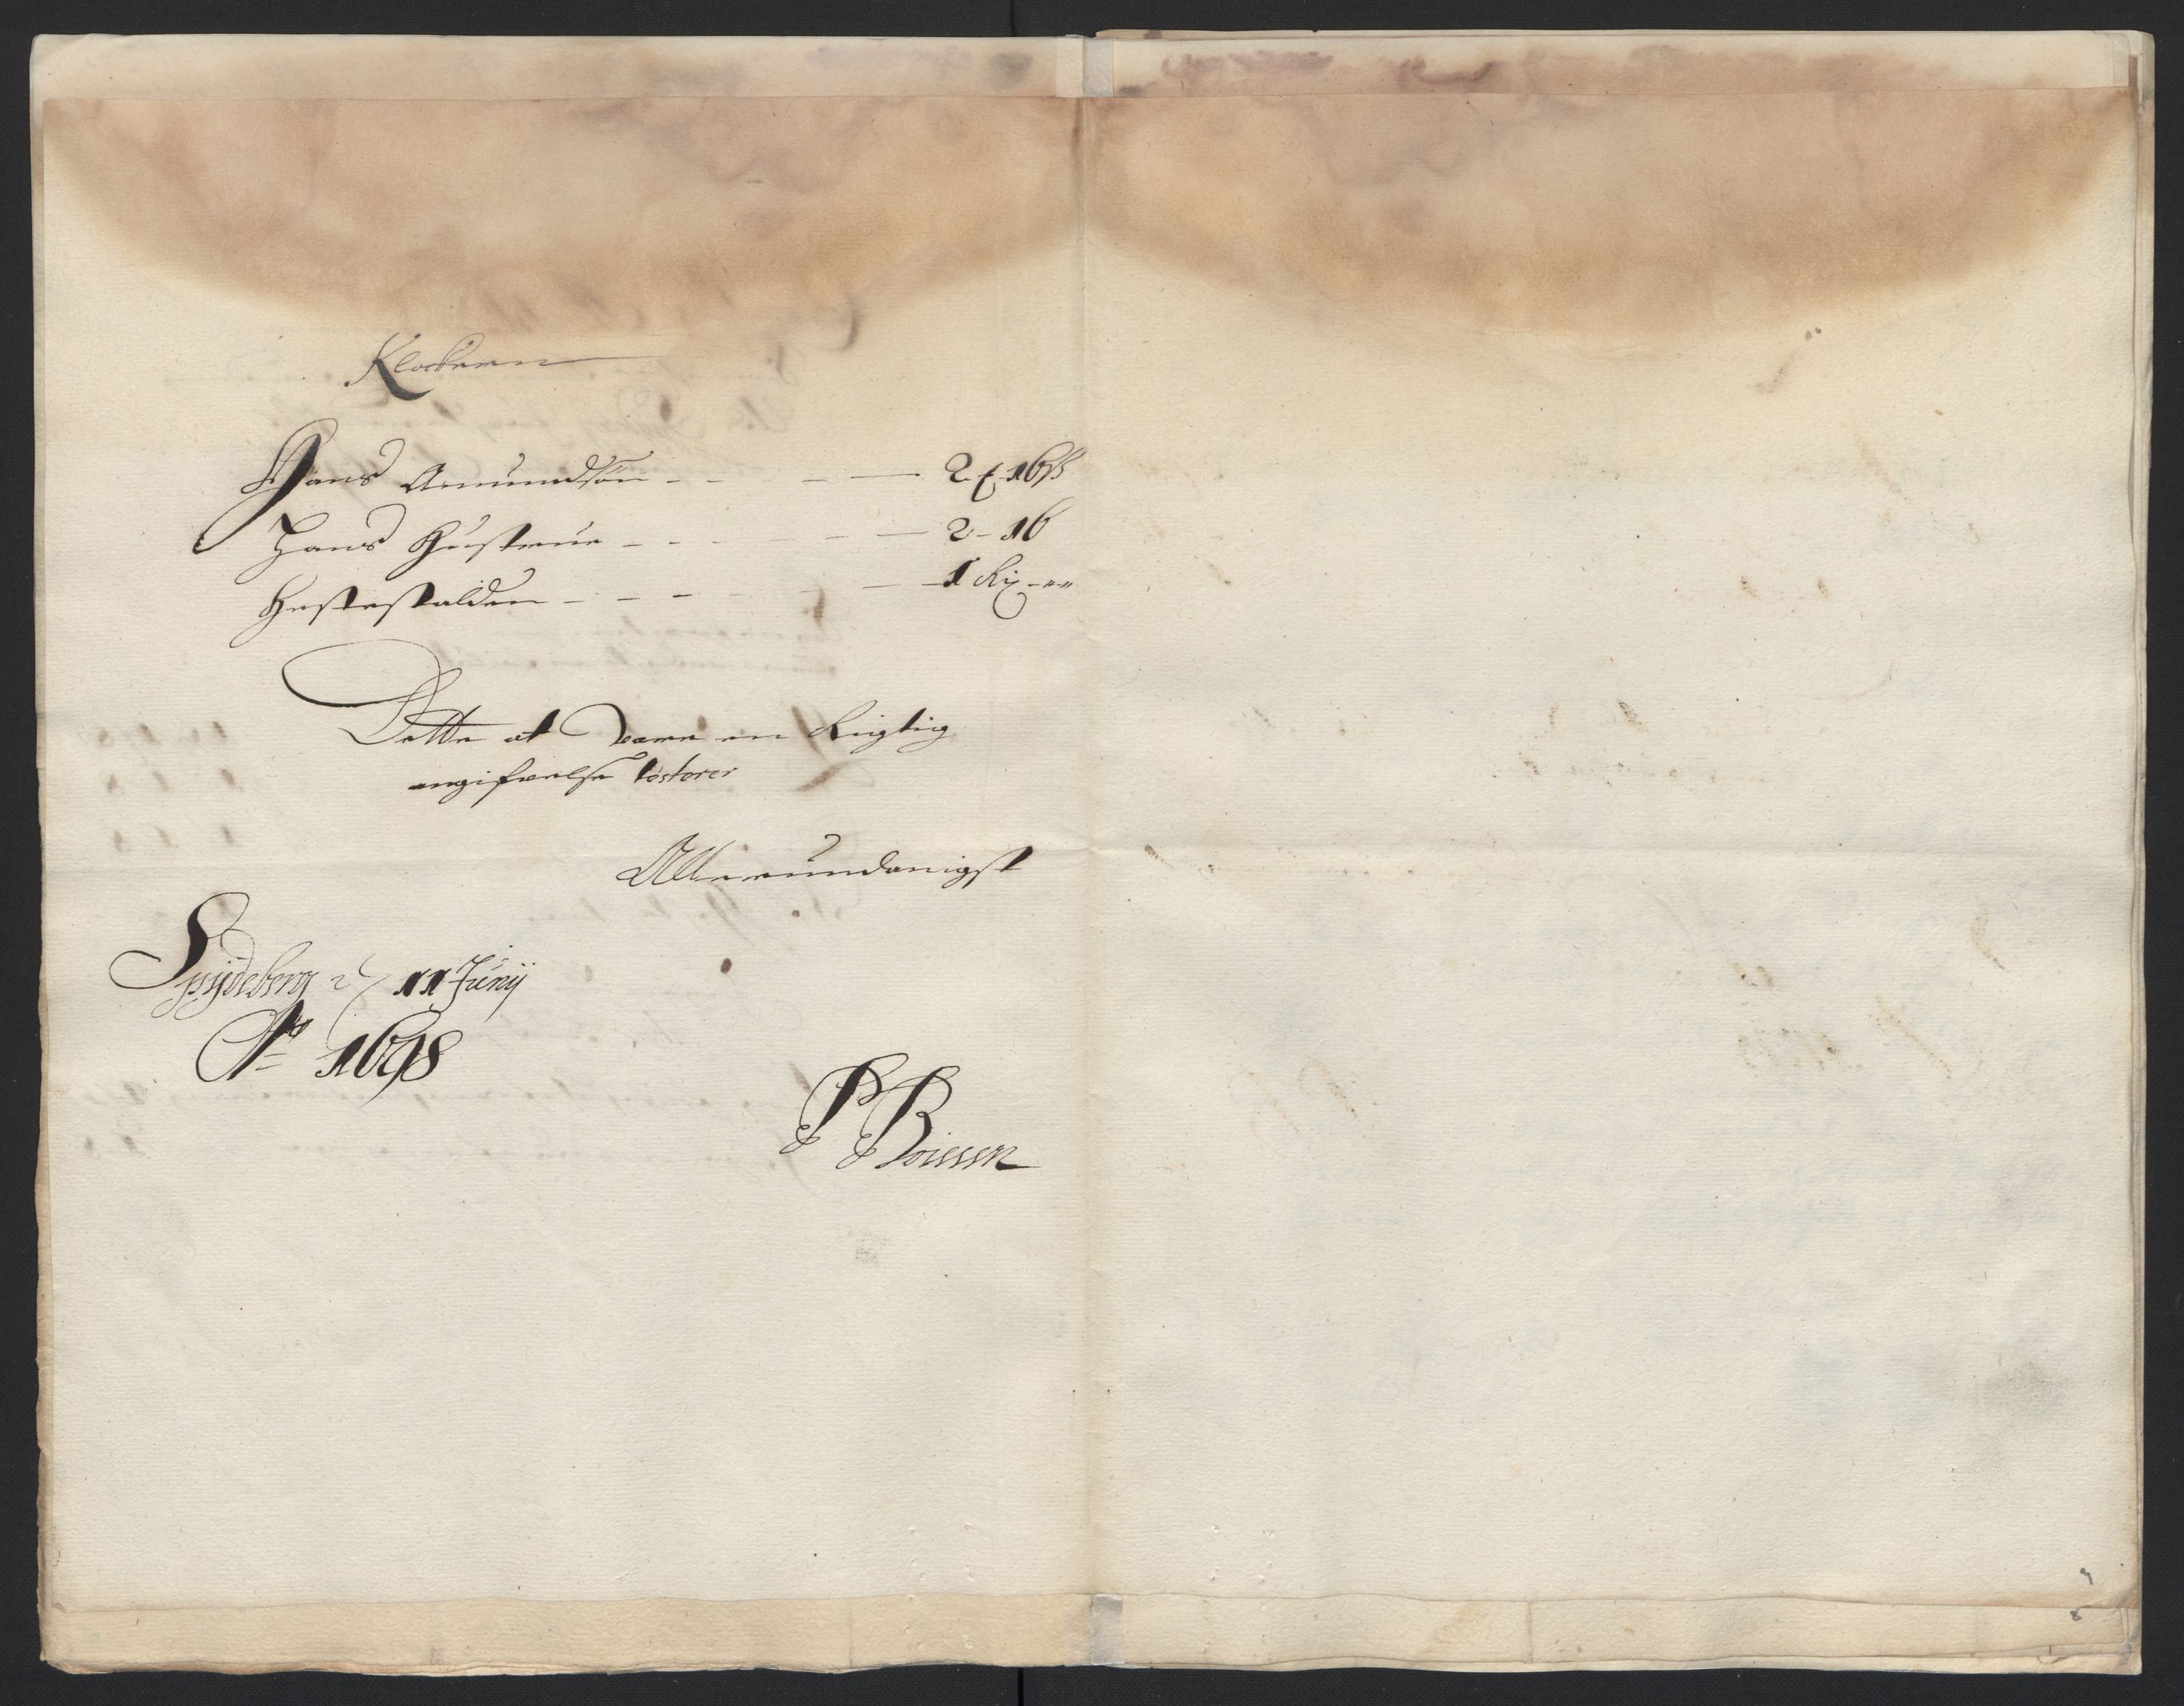 Klockeren
Hans Amundsøn - - - — 2 ꝑ 16 ß
Hans Hustrue - - - - - — 2 - 16
Hestestalden - - - - — 1 Rix - ""
Dette at være en Rigtig
angifvelse Tester
Allerundanigst
Spydeberg d 11 Junij
Ao 1698
P Boiesen